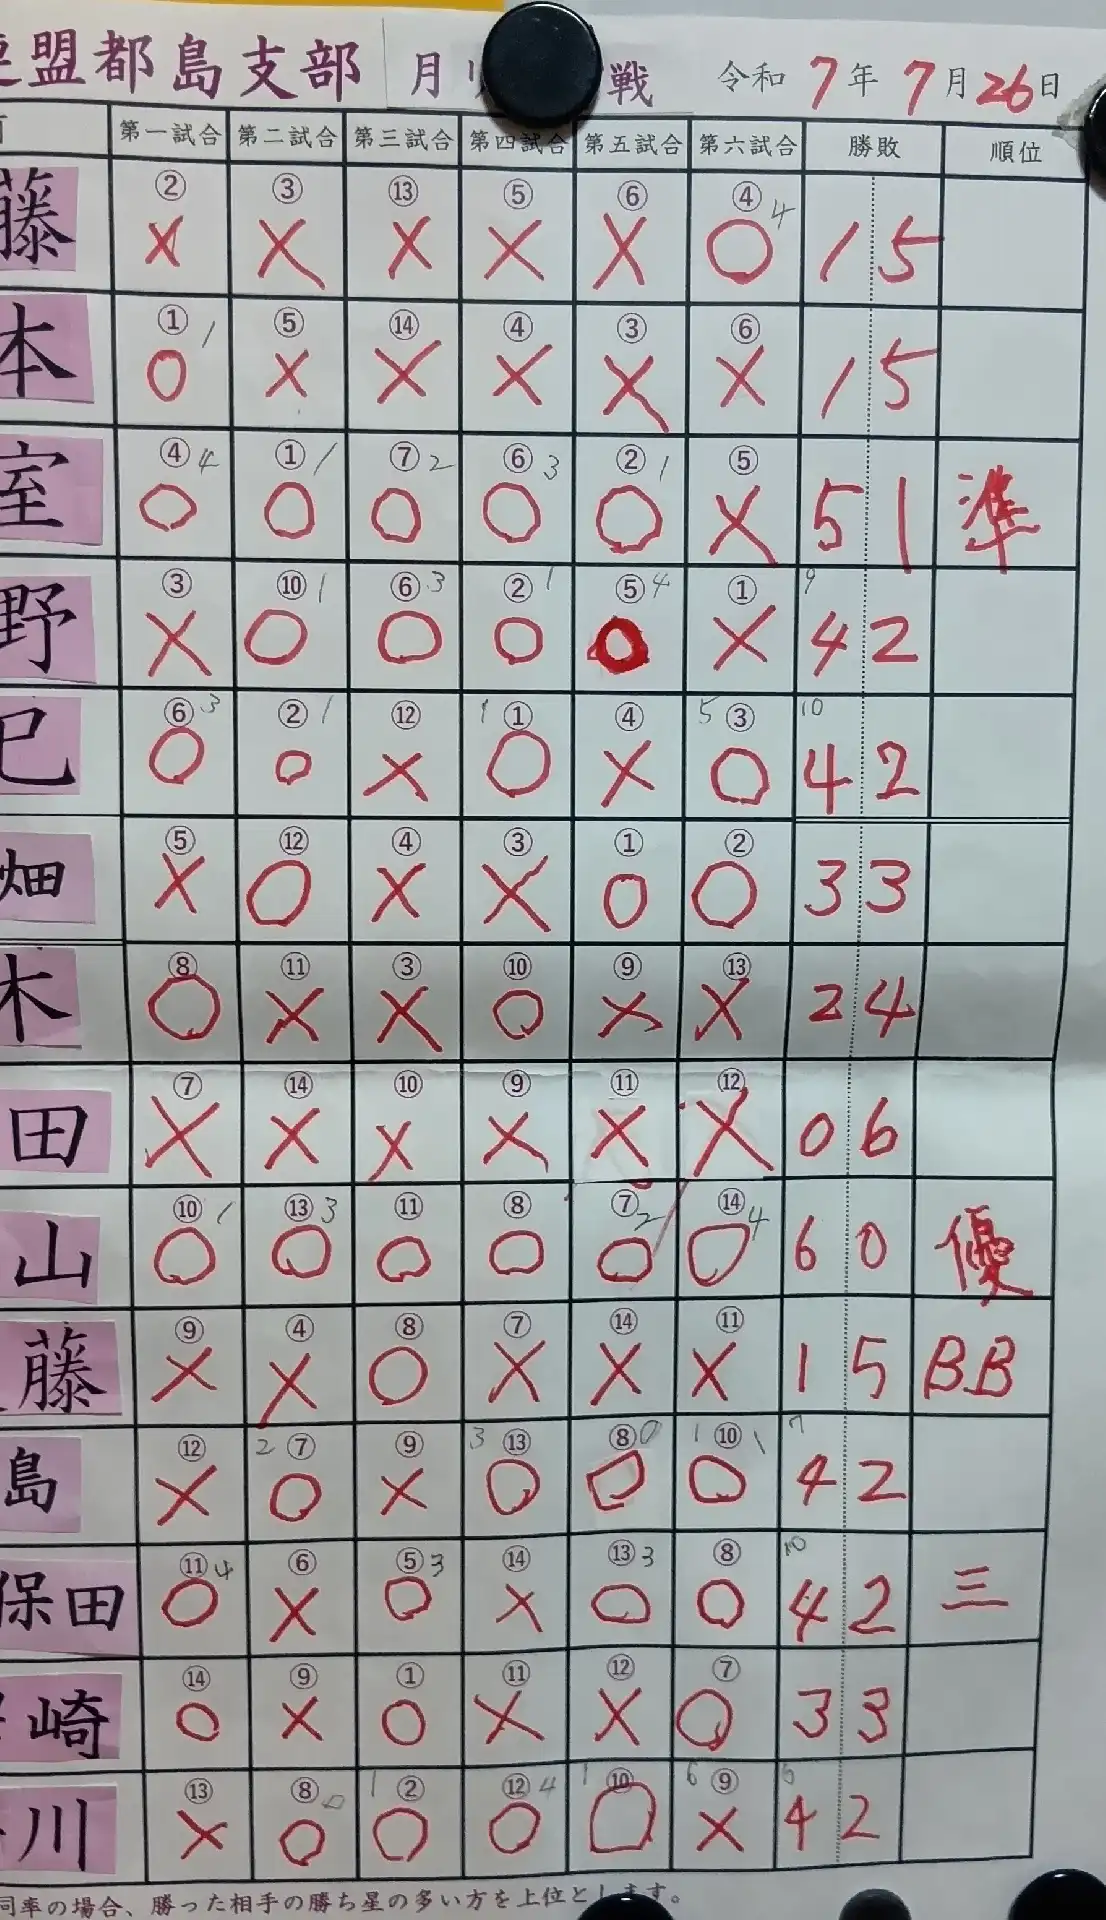 盟都島支部 月 戦 令和7年7月26日
第一試合 第二試合 第三試合 第四試合 第五試合 第六試合 勝敗 順位
藤 ② × ③ × ⑬ × ⑤ × ⑥ × ④ 4 ○ 1 5
本 ① 1 ○ ⑤ × ⑭ × ④ × ③ × ⑥ × 1 5
室 ④ 4 ○ ① 1 ○ ⑦ 2 ○ ⑥ 3 ○ ② 1 ○ ⑤ × 5 1 準
野 ③ × ⑩ 1 ○ ⑥ 3 ○ ② 1 ○ ⑤ 4 ○ ① × 9 4 2
巳 ⑥ 3 ○ ② 1 ○ ⑫ × 1 ① ○ ④ × 5 ③ ○ 10 4 2
畑 ⑤ × ⑫ ○ ④ × ③ × ① ○ ② ○ 3 3
木 ⑧ ○ ⑪ × ③ × ⑩ ○ ⑨ × ⑬ × 2 4
田 ⑦ × ⑭ × ⑩ × ⑨ × ⑪ × ⑫ × 0 6
山 ⑩ 1 ○ ⑬ 3 ○ ⑪ ○ ⑧ ○ ⑦ 2 ○ ⑭ 4 ○ 6 0 優
藤 ⑨ × ④ × ⑧ ○ ⑦ × ⑭ × ⑪ × 1 5 B.B
島 ⑫ × 2 ⑦ ○ ⑨ × 3 ⑬ ○ ⑧ 0 ○ 1 ⑩ 1 ○ 7 4 2
保田 ⑪ 4 ○ ⑥ × ⑤ 3 ○ ⑭ × ⑬ 3 ○ ⑧ ○ 10 4 2 三
崎 ⑭ ○ ⑨ × ① ○ ⑪ × ⑫ × ⑦ ○ 3 3
川 ⑬ × ⑧ 0 ○ 1 ② ○ ⑫ 4 ○ 1 ⑩ ○ 6 ⑨ × 4 2
同率の場合、勝った相手の勝ち星の多い方を上位とします。